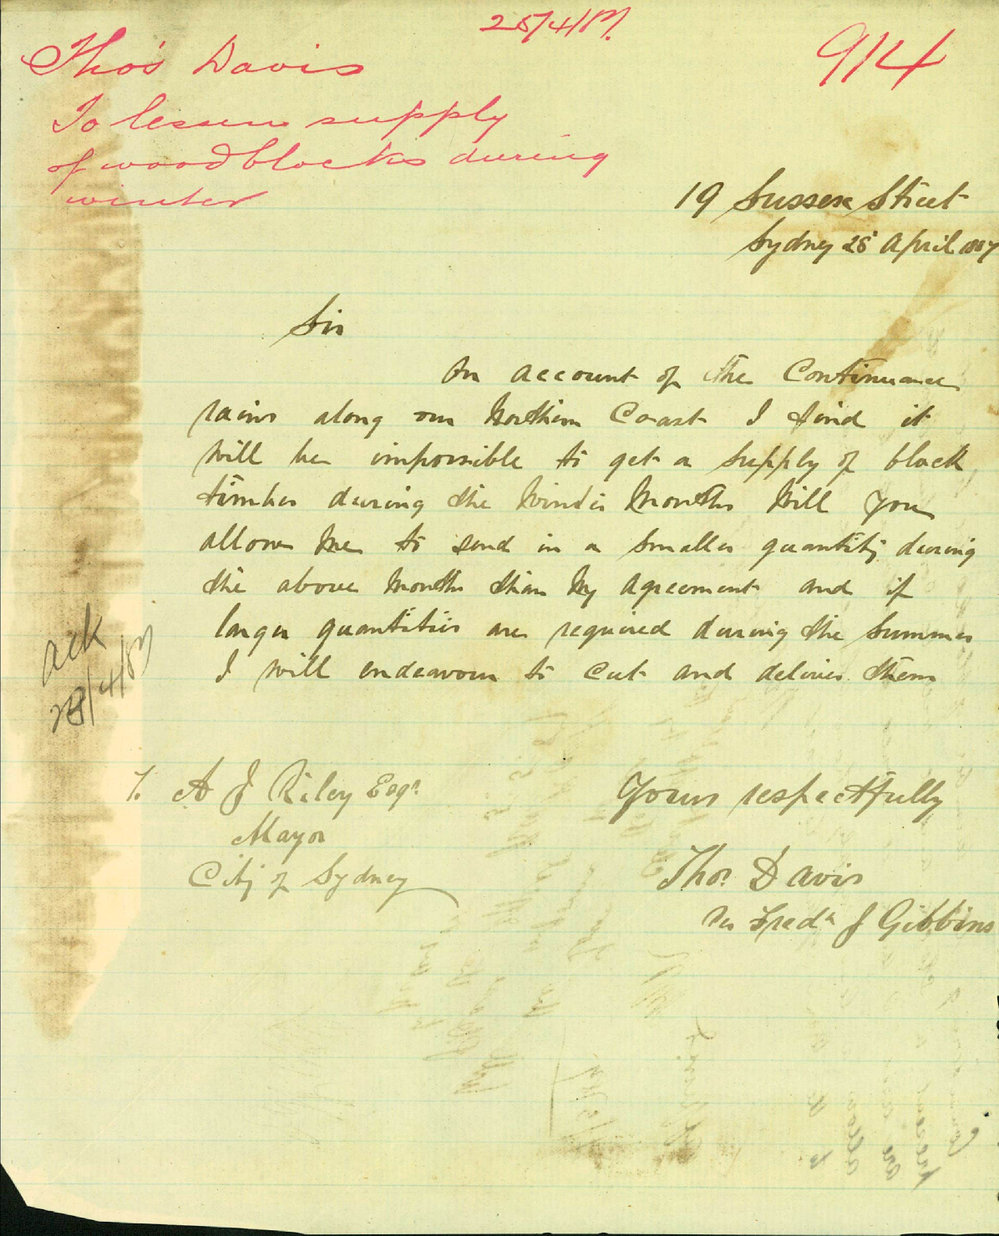 25/4/87
914
Thos Davis
To lessen supply
of woodblocks during
winter
19 Sussex Street
Sydney 28 April 1887
Sir
On account of the Continuance
rains along our Northern Coast I find it
will be impossible to get a supply of block
timber during the Winter Months Will you
allow me to send in a smaller quantity during
the above Months than my agreement and if
larger quantities are required during the Summer
I will endeavour to cut and deliver them
ack
28/4/87
To A J Riley Esqr
Mayor
City of Sydney
Yours respectfully
Thos. Davis
Per Fredk J Gibbins